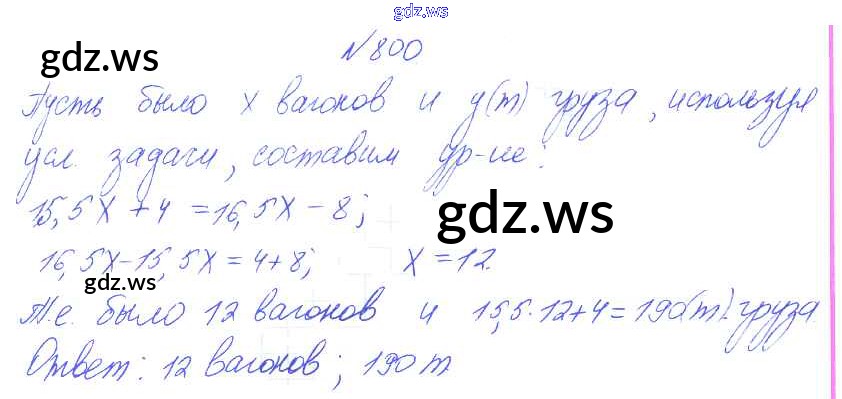 gdz.ws
№ 800
gdz.ws
Пусть было x вагонов и y(т) груза, используя
усл. задачи, составим ур-ие:
15,5x + 4 = 16,5x - 8;
gdz.ws
16,5x - 15,5x = 4 + 8; x = 12.
gdz.ws
Т.е. было 12 вагонов и 15,5 · 12 + 4 = 190(т) груза
Ответ: 12 вагонов; 190 т